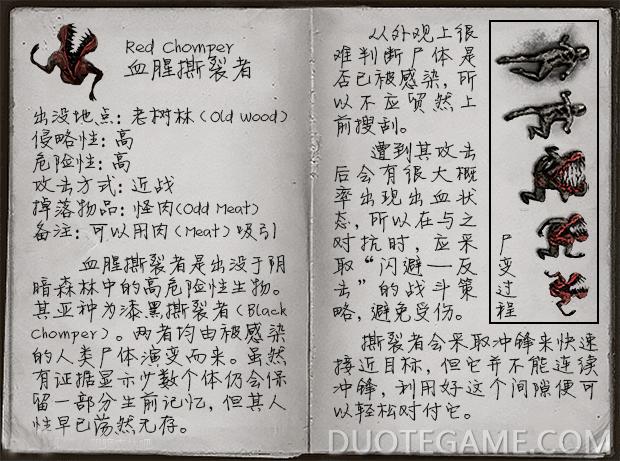 Red Chomper
血腥撕裂者
出没地点: 老树林 (Old Wood)
侵略性: 高
危险性: 高
攻击方式: 近战
掉落物品: 怪肉(Odd Meat)
备注: 可以用肉 (Meat) 吸引
血腥撕裂者是出没于阴
暗森林中的高危险性生物。
其亚种为漆黑撕裂者(Black
Chomper)。两者均由被感染
的人类尸体演变而来。虽然
有证据显示少数个体仍会保
留一部分生前记忆, 但其人
性早已荡然无存。
从外观上很
难判断尸体是
否已被感染, 所
以不应贸然上
前搜刮。
遭到其攻击
后会有很大概
率出现出血状
态, 所以在与之
对抗时, 应采
取“闪避—反
击”的战斗策
略, 避免受伤。
尸变过程
撕裂者会采取冲锋来快速
接近目标, 但它并不能连续
冲锋, 利用好这个间隙便可
以轻松对付它。
DUOTEGAME.COM